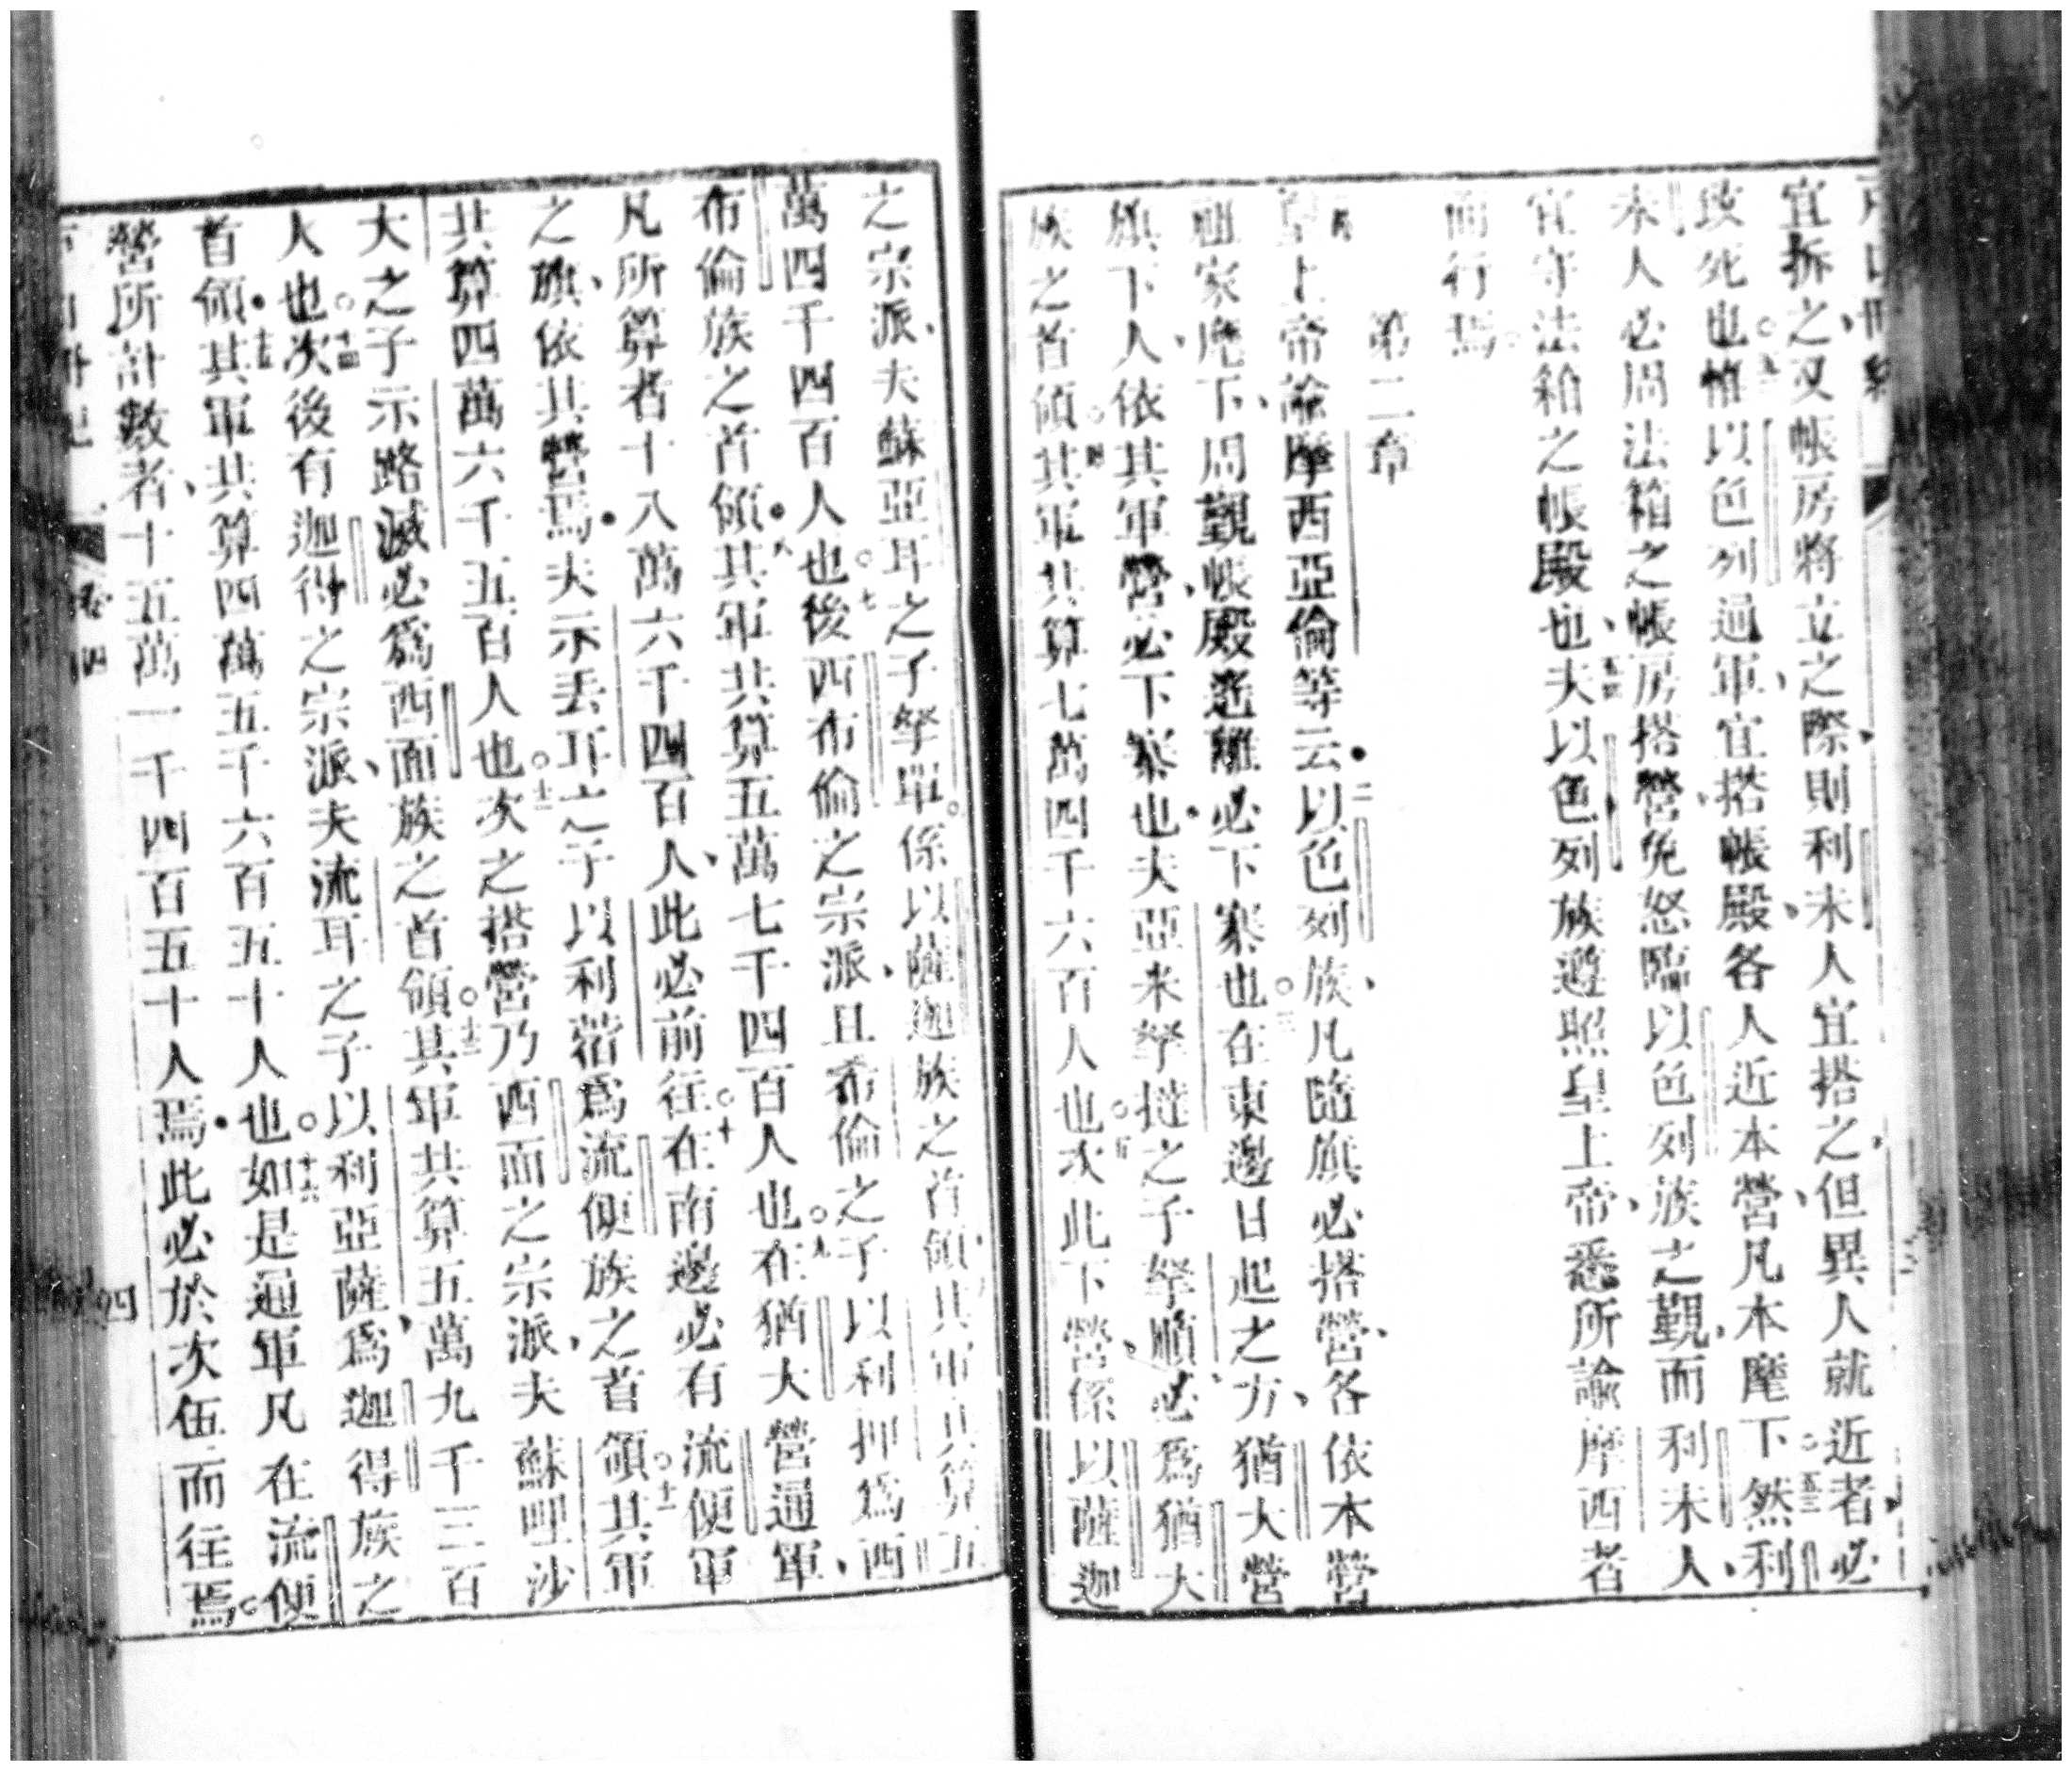 宜拆之、又帳房將立之際、則利未人宜搭之、但異人就近者、必
致死也。五二惟以色列通軍、宜搭帳殿、各人近本營、凡本麾下。五三然利
未人必周法箱之帳房搭營、免怒臨以色列族之觀、而利未人、
宜守法箱之帳殿也、五四夫以色列族遵照皇上帝、悉所諭摩西者
而行焉。
第二章
皇上帝諭摩西亞倫等云・二以色列族、凡隨旗必搭營、各依本營
祖家麾下、周觀帳殿遙離必下寨也。三在東邊日起之方、猶大營
旗下人、依其軍營、必下寨也・夫亞米拏撻之子拏順、必爲猶大
族之首領。四其軍共算七萬四千六百人也。五次此下營、係以薩迦
之宗派、夫蘇亞耳之子拏單。係以薩迦族之首領、其軍共算五
萬四千四百人也。七後西布倫之宗派、且希倫之子以利押爲西
布倫族之首領・八其軍共算五萬七千四百人也。九在猶大營通軍、
凡所算者十八萬六千四百人、此必前往。十在南邊必有流便軍
之旗、依其營焉・夫示丟耳之子以利蓿爲流便族之首領。十一其軍
共算四萬六千五百人也。十二次之搭營乃西面之宗派、夫蘇哩沙
大之子示路滅必爲西面族之首領。十三其軍共算五萬九千三百
人也。十四次後有迦得之宗派、夫流耳之子以利亞薩、爲迦得族之
首領・十五其軍共算四萬五千六百五十人也。十六如是通軍凡在流便
營所計數者、十五萬一千四百五十人焉・此必於次伍而往焉。
四